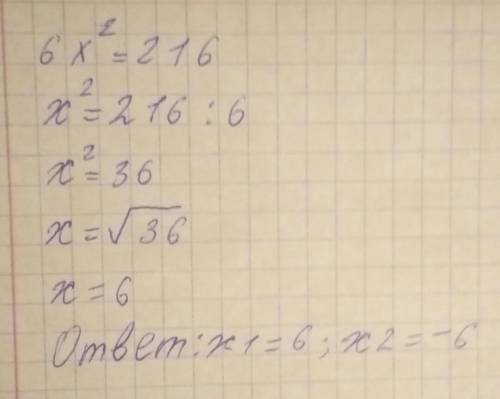 6x² = 216
x² = 216 : 6
x² = 36
x = √36
x = 6
Ответ: x1 = 6 ; x2 = -6